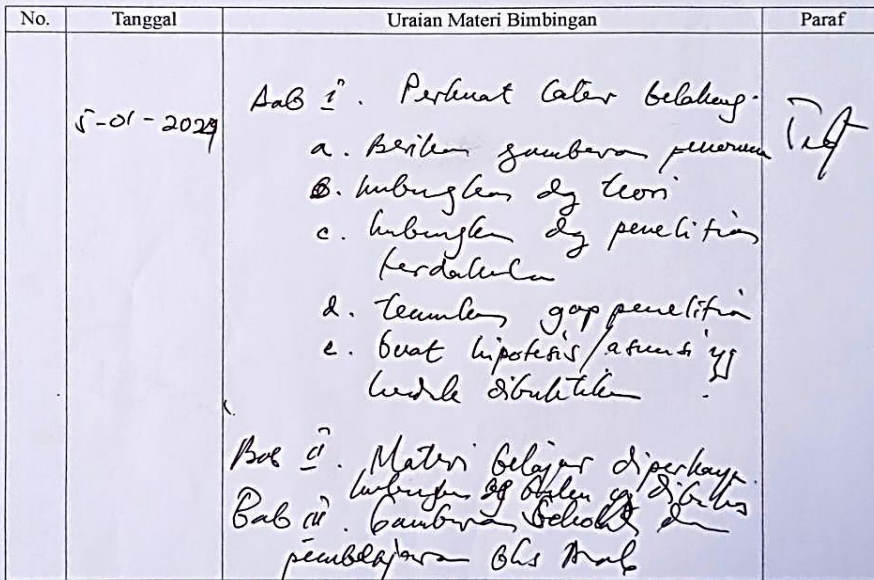 No. Tanggal Uraian Materi Bimbingan Paraf
5-01-2024
Bab I. Perkuat latar belakang.
a. Berikan gambaran
b. hubungkan dg teori
c. hubungkan dg penelitian
terdahulu
d. temukan gap penelitian
e. buat hipotesis/asumsi yg
hendak dibuktikan
Bab II. Materi belajar diperkaya
hubungan dg
Bab III. Gambaran Sekolah dan
pembelajaran Bhs Arab